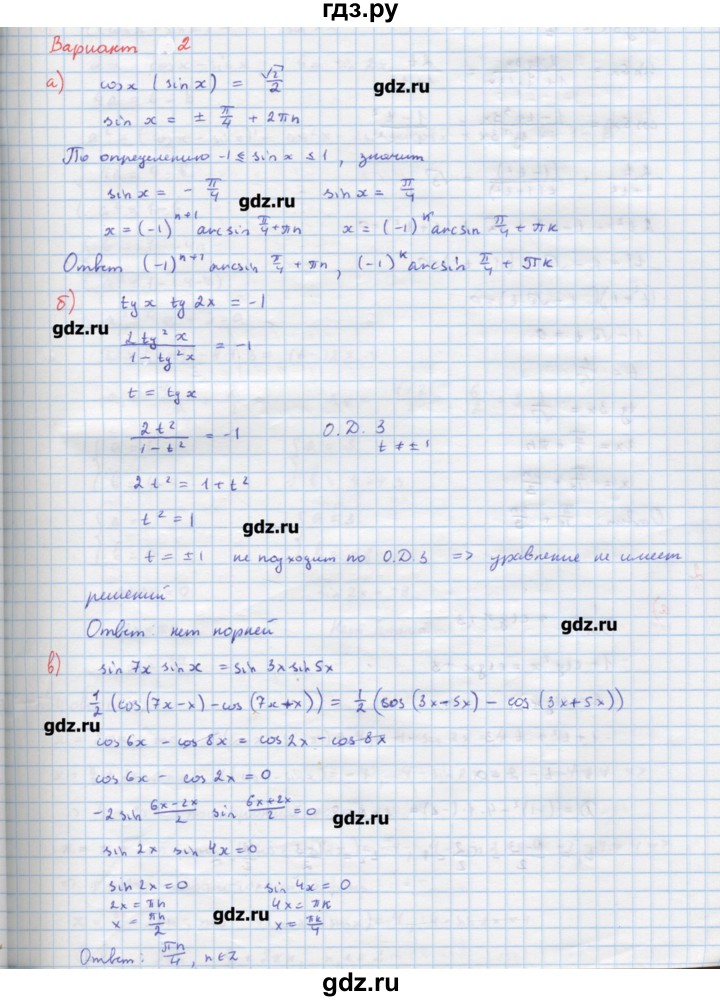 гдз.ру
Вариант 2
а) cosx (sin x) = √2/2
gdz.ru
sin x = ± π/4 + 2πn
По определению -1 ≤ sin x ≤ 1, значит
sin x = - π/4 sin x = π/4
gdz.ru
x = (-1)^n+1 arcsin π/4 + πn x = (-1)^k arcsin π/4 + πk
Ответ (-1)^n+1 arcsin π/4 + πn, (-1)^k arcsin π/4 + πk
б) tg x tg 2x = -1
gdz.ru
2 tg² x / 1 - tg² x = -1
t = tg x
2t² / 1 - t² = -1 О.Д.З
t ≠ ± 1
2t² = 1 + t²
t² = 1
gdz.ru
t = ± 1 не подходит по О.Д.З => уравнение не имеет
решений
gdz.ru
Ответ: нет корней
в) sin 7x sin x = sin 3x sin 5x
1/2 (cos(7x-x) - cos(7x+x)) = 1/2 (cos(3x-5x) - cos(3x+5x))
gdz.ru
cos 6x - cos 8x = cos 2x - cos 8x
cos 6x - cos 2x = 0
-2 sin 6x-2x/2 sin 6x+2x/2 = 0
gdz.ru
sin 2x sin 4x = 0
sin 2x = 0 sin 4x = 0
2x = πn 4x = πk
x = πn/2 x = πk/4
gdz.ru
Ответ: πn/4, n ∈ Z
gdz.ru